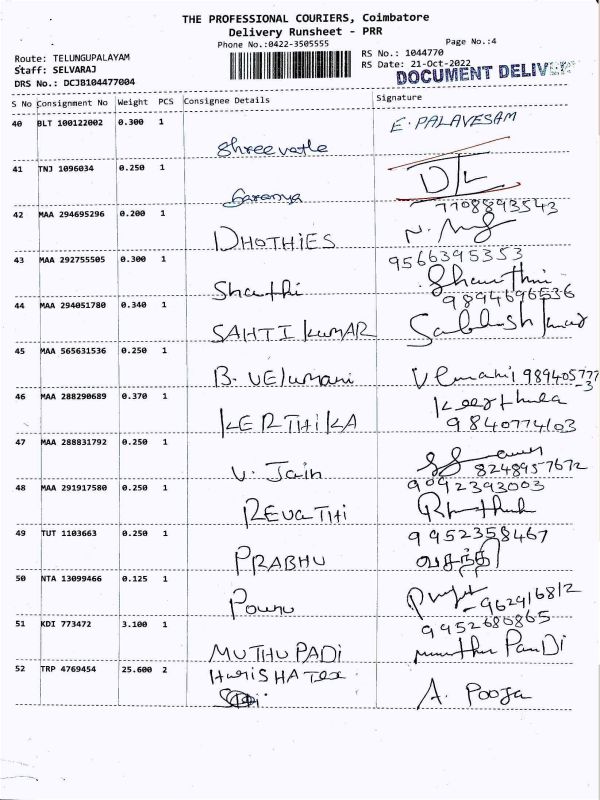 THE PROFESSIONAL COURIERS, Coimbatore
Delivery Runsheet - PRR
Phone No.:0422-3505555
Page No.:4
Route: TELUNGUPALAYAM
RS No.: 1044770
Staff: SELVARAJ
RS Date: 21-Oct-2022
DRS No.: DCJB104477004
DOCUMENT DELIVER
S No Consignment No Weight PCS Consignee Details Signature
40 BLT 100122002 0.300 1
Shreevatle E. PALAVESAM
41 TNJ 1096034 0.250 1
Saranya
42 MAA 294695296 0.200 1 7708893543
DHOTHIES
43 MAA 292755505 0.300 1 9566395353
Shanthi Shanthini
44 MAA 294051780 0.340 1 9894696536
SAHTI KUMAR
45 MAA 565631536 0.250 1
B. VELumani Velmani 989405777
3
46 MAA 288290689 0.370 1
KERTHIKA 9840774103
47 MAA 288831792 0.250 1
V. Jain 8248957672
48 MAA 291917580 0.250 1 9092393003
REVATHI
49 TUT 1103663 0.250 1 9952358467
PRABHU வசந்தி
50 NTA 13099466 0.125 1
962916812
51 KDI 773472 3.100 1 9952680865
MUTHUPADI muthu PanDi
52 TRP 4769454 25.600 2 HariSHA Tex
A. Pooja